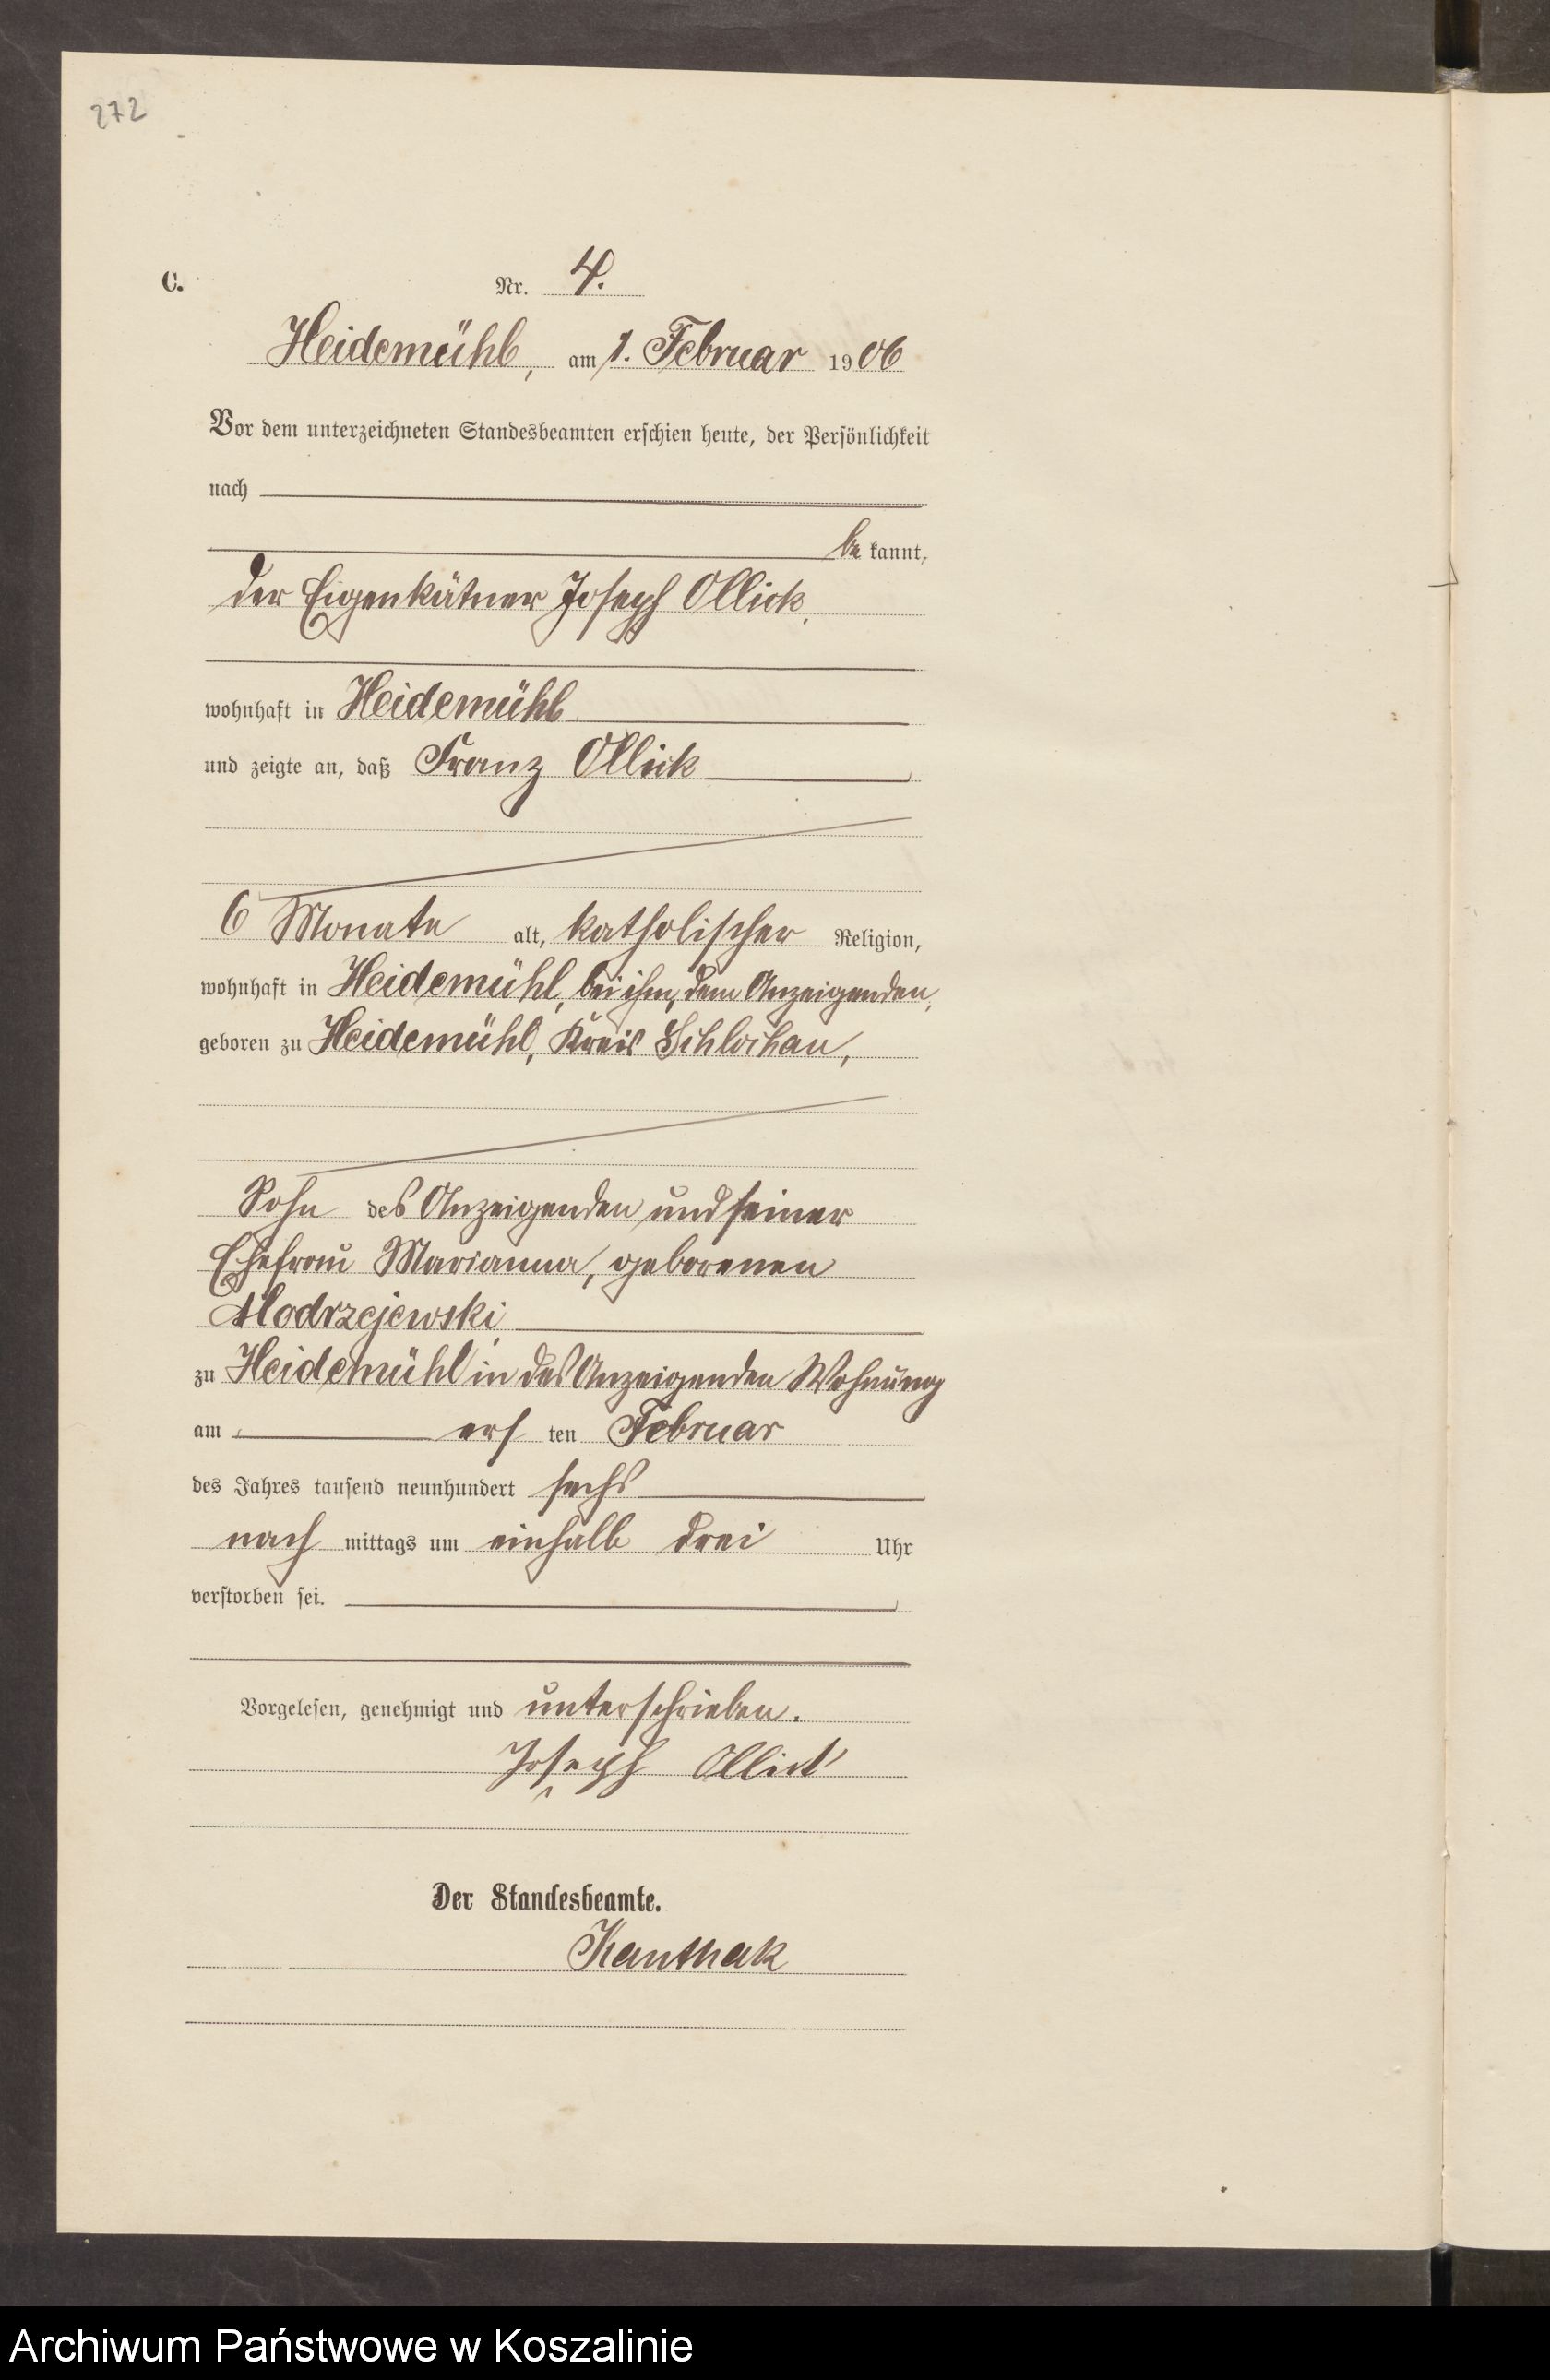 272
C.
Nr. 4.
Heidemühl, am 1. Februar 1906
Vor dem unterzeichneten Standesbeamten erschien heute, der Persönlichkeit
nach
be kannt,
der Eigenkätner Joseph Ollick,
wohnhaft in Heidemühl
und zeigte an, daß Franz Ollick,
6 Monate alt, katholischer Religion,
wohnhaft in Heidemühl, bei ihm, dem Anzeigenden,
geboren zu Heidemühl, Kreis Schlochau,
Sohn des Anzeigenden und seiner
Ehefrau Marianna, geborenen
Modrzejewski,
zu Heidemühl in des Anzeigenden Wohnung
am ers ten Februar
des Jahres tausend neunhundert sechs
nach mittags um einhalb drei Uhr
verstorben sei.
Vorgelesen, genehmigt und unterschrieben.
Joseph Ollick
Der Standesbeamte.
Kanthak
Archiwum Państwowe w Koszalinie